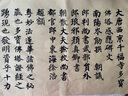 大唐西京千福寺多寶
佛塔感應碑文
南陽岑勛撰朝議
郎判尚書武部員外
郎琅邪顏真卿書
朝散大夫檢校尚書
都官郎中東海徐浩
題額
粵妙法蓮華諸佛之秘
藏也多寶佛塔證經之
踊現也發明資乎十力